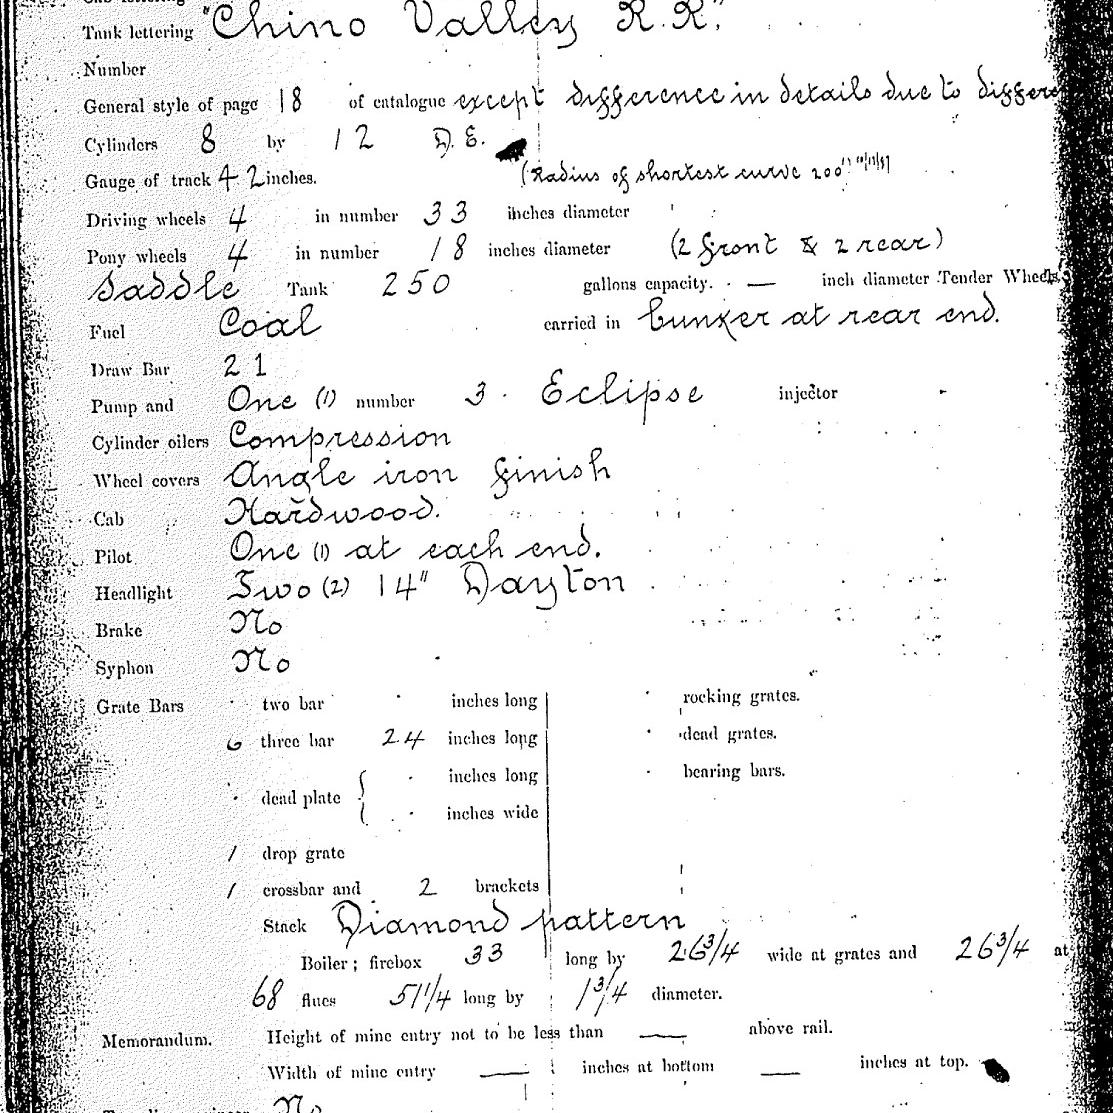 Tank lettering "Chino Valley R.R."
Number
General style of page 18 of catalogue except difference in details due to
Cylinders 8 by 12 D.E.
Gauge of track 42 inches. (Radius of shortest curve 200'
Driving wheels 4 in number 33 inches diameter
Pony wheels 4 in number 18 inches diameter (2 front & 2 rear)
Saddle Tank 250 gallons capacity. — inch diameter Tender Wheels
Fuel Coal carried in bunker at rear end.
Draw Bar 21
Pump and One (1) number 3 Eclipse injector
Cylinder oilers Compression
Wheel covers Angle iron finish
Cab Hardwood.
Pilot One (1) at each end.
Headlight Two (2) 14" Dayton
Brake No
Syphon No
Grate Bars two bar inches long rocking grates.
6 three bar 24 inches long dead grates.
inches long bearing bars.
dead plate {
inches wide
1 drop grate
1 crossbar and 2 brackets
Stack Diamond pattern
Boiler; firebox 33 long by 26 3/4 wide at grates and 26 3/4 at
68 flues 51 1/4 long by 1 3/4 diameter.
Memorandum. Height of mine entry not to be less than — above rail.
Width of mine entry — inches at bottom — inches at top.
No